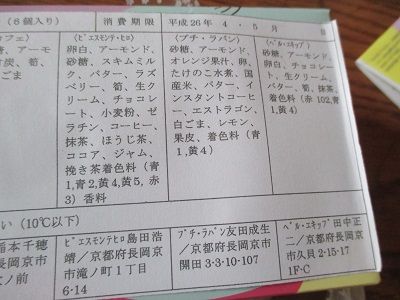 (8個入り) 消費期限 平成26年 4．5月 日
カフェ)
糖、アーモ
竹炭、筍、
ン
(ﾋﾟｴｽﾓﾝﾃ･ﾋﾛ)
卵白、アーモンド、
砂糖、スキムミル
ク、バター、ラズ
ベリー、筍、生ク
リーム、チョコレ
ート、小麦粉、ゼ
ラチン、コーヒー、
抹茶、ほうじ茶、
ココア、ジャム、
挽き茶着色料(青
1,青2,黄4,黄5,赤
3)香料
(プチ・ラパン)
砂糖、アーモンド、
オレンジ果汁、卵、
たけのこ水煮、国
産米、バター、イ
ンスタントコーヒ
ー、エストラゴン、
白ごま、レモン、
果皮、着色料(青
1,黄4)
(ﾍﾞﾙ･ｴｷｯﾌﾟ)
砂糖、アーモンド、
卵白、チョコレー
ト、生クリーム、
バター、筍、抹茶、
着色料(赤102,青
1,黄4)
い (10℃以下)
稲本千穂
長岡京市
ノ前
ﾋﾟｴｽﾓﾝﾃﾋﾛ島田浩
靖／京都府長岡京
市滝ノ町1丁目
6-14
ﾌﾟﾁ・ﾗﾊﾟﾝ友田成生
／京都府長岡京市
開田3-3-10-107
ﾍﾞﾙ・ｴｷｯﾌﾟ田中正
二／京都府長岡京
市久貝2-15-17
1F-C